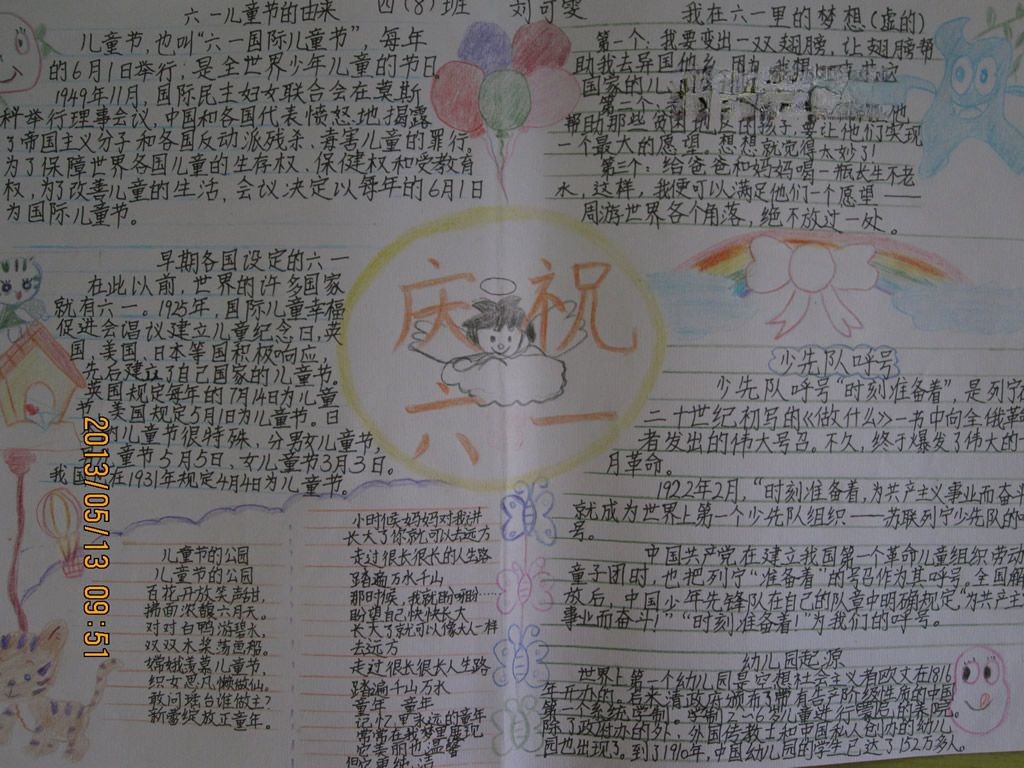 六一儿童节的由来 四(8)班 刘可雯
儿童节,也叫“六一国际儿童节”,每年
的6月1日举行,是全世界少年儿童的节日。
1949年11月,国际民主妇女联合会在莫斯
科举行理事会议,中国和各国代表愤怒地揭露
了帝国主义分子和各国反动派残杀、毒害儿童的罪行。
为了保障世界各国儿童的生存权、保健权和受教育
权,为了改善儿童的生活,会议决定以每年的6月1日
为国际儿童节。
早期各国设定的六一
在此以前,世界的许多国家
就有六一。1925年,国际儿童幸福
促进会倡议建立儿童纪念日,英
国、美国、日本等国积极响应,
先后建立了自己国家的儿童节。
英国规定每年的7月14日为儿童
节,美国规定5月1日为儿童节。日
的儿童节很特殊,分男女儿童节,
童节5月5日、女儿童节3月3日。
我国 在1931年规定4月4日为儿童节。
儿童节的公园
儿童节的公园
百花开放笑声甜,
拂面浓馥六月天。
对对白鸭游碧水,
双双木桨荡画船。
嫦娥羡慕儿童节,
织女思凡懒做仙。
敢问瑶台谁做主?
新蕾绽放正童年。
小时候妈妈对我讲
长大了你就可以去远方
走过很长很长的人生路
踏遍万水千山
那时候,我就盼呀盼……
盼望自己快快长大
长大了就可以像大人一样
去远方
走过很长很长人生路
踏遍千山万水
童年 童年
记忆里永远的童年
常常在我梦里展现
完美丽也温馨
庆祝
六一
我在六一里的梦想(虚的)
第一个:我要变出一双翅膀,让翅膀帮
助我去异国他乡,用
国家的儿
第二个: 他
帮助那些贫困 的孩子,要让他们实现
一个最大的愿望。想想就觉得太妙了!
第三个:给爸爸和妈妈喝一瓶长生不老
水,这样,我便可以满足他们一个愿望——
周游世界各个角落,绝不放过一处。
少先队呼号
少先队呼号“时刻准备着”,是列宁
二十世纪初写的《做什么》一书中向全俄革
者发出的伟大号召。不久,终于爆发了伟大的
月革命。
1922年2月,“时刻准备着,为共产主义事业而奋斗
就成为世界上第一个少先队组织——苏联列宁少先队的
号。
中国共产党在建立我国第一个革命儿童组织劳动
童子团时,也把列宁“准备着”的号召作为其呼号。全国解
放后,中国少年先锋队在自己的队章中明确规定,“为共产主
事业而奋斗!”“时刻准备着!”为我们的呼号。
幼儿园起源
世界上第一个幼儿园是空想社会主义者欧文在1816
年开办的。后来清政府颁布了带有资产阶级性质的中国
第一个系统学制。
除了政府办的外,外国传教士和中国私人创办的幼儿
园也出现了。到了1910年,中国幼儿园的学生已达了152万多人。
2013/05/13 09:51